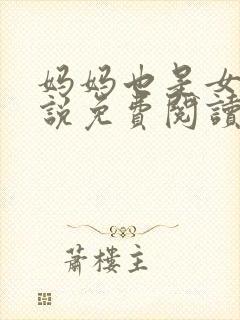 妈妈也是女
説免費閱讀
蕭樓主